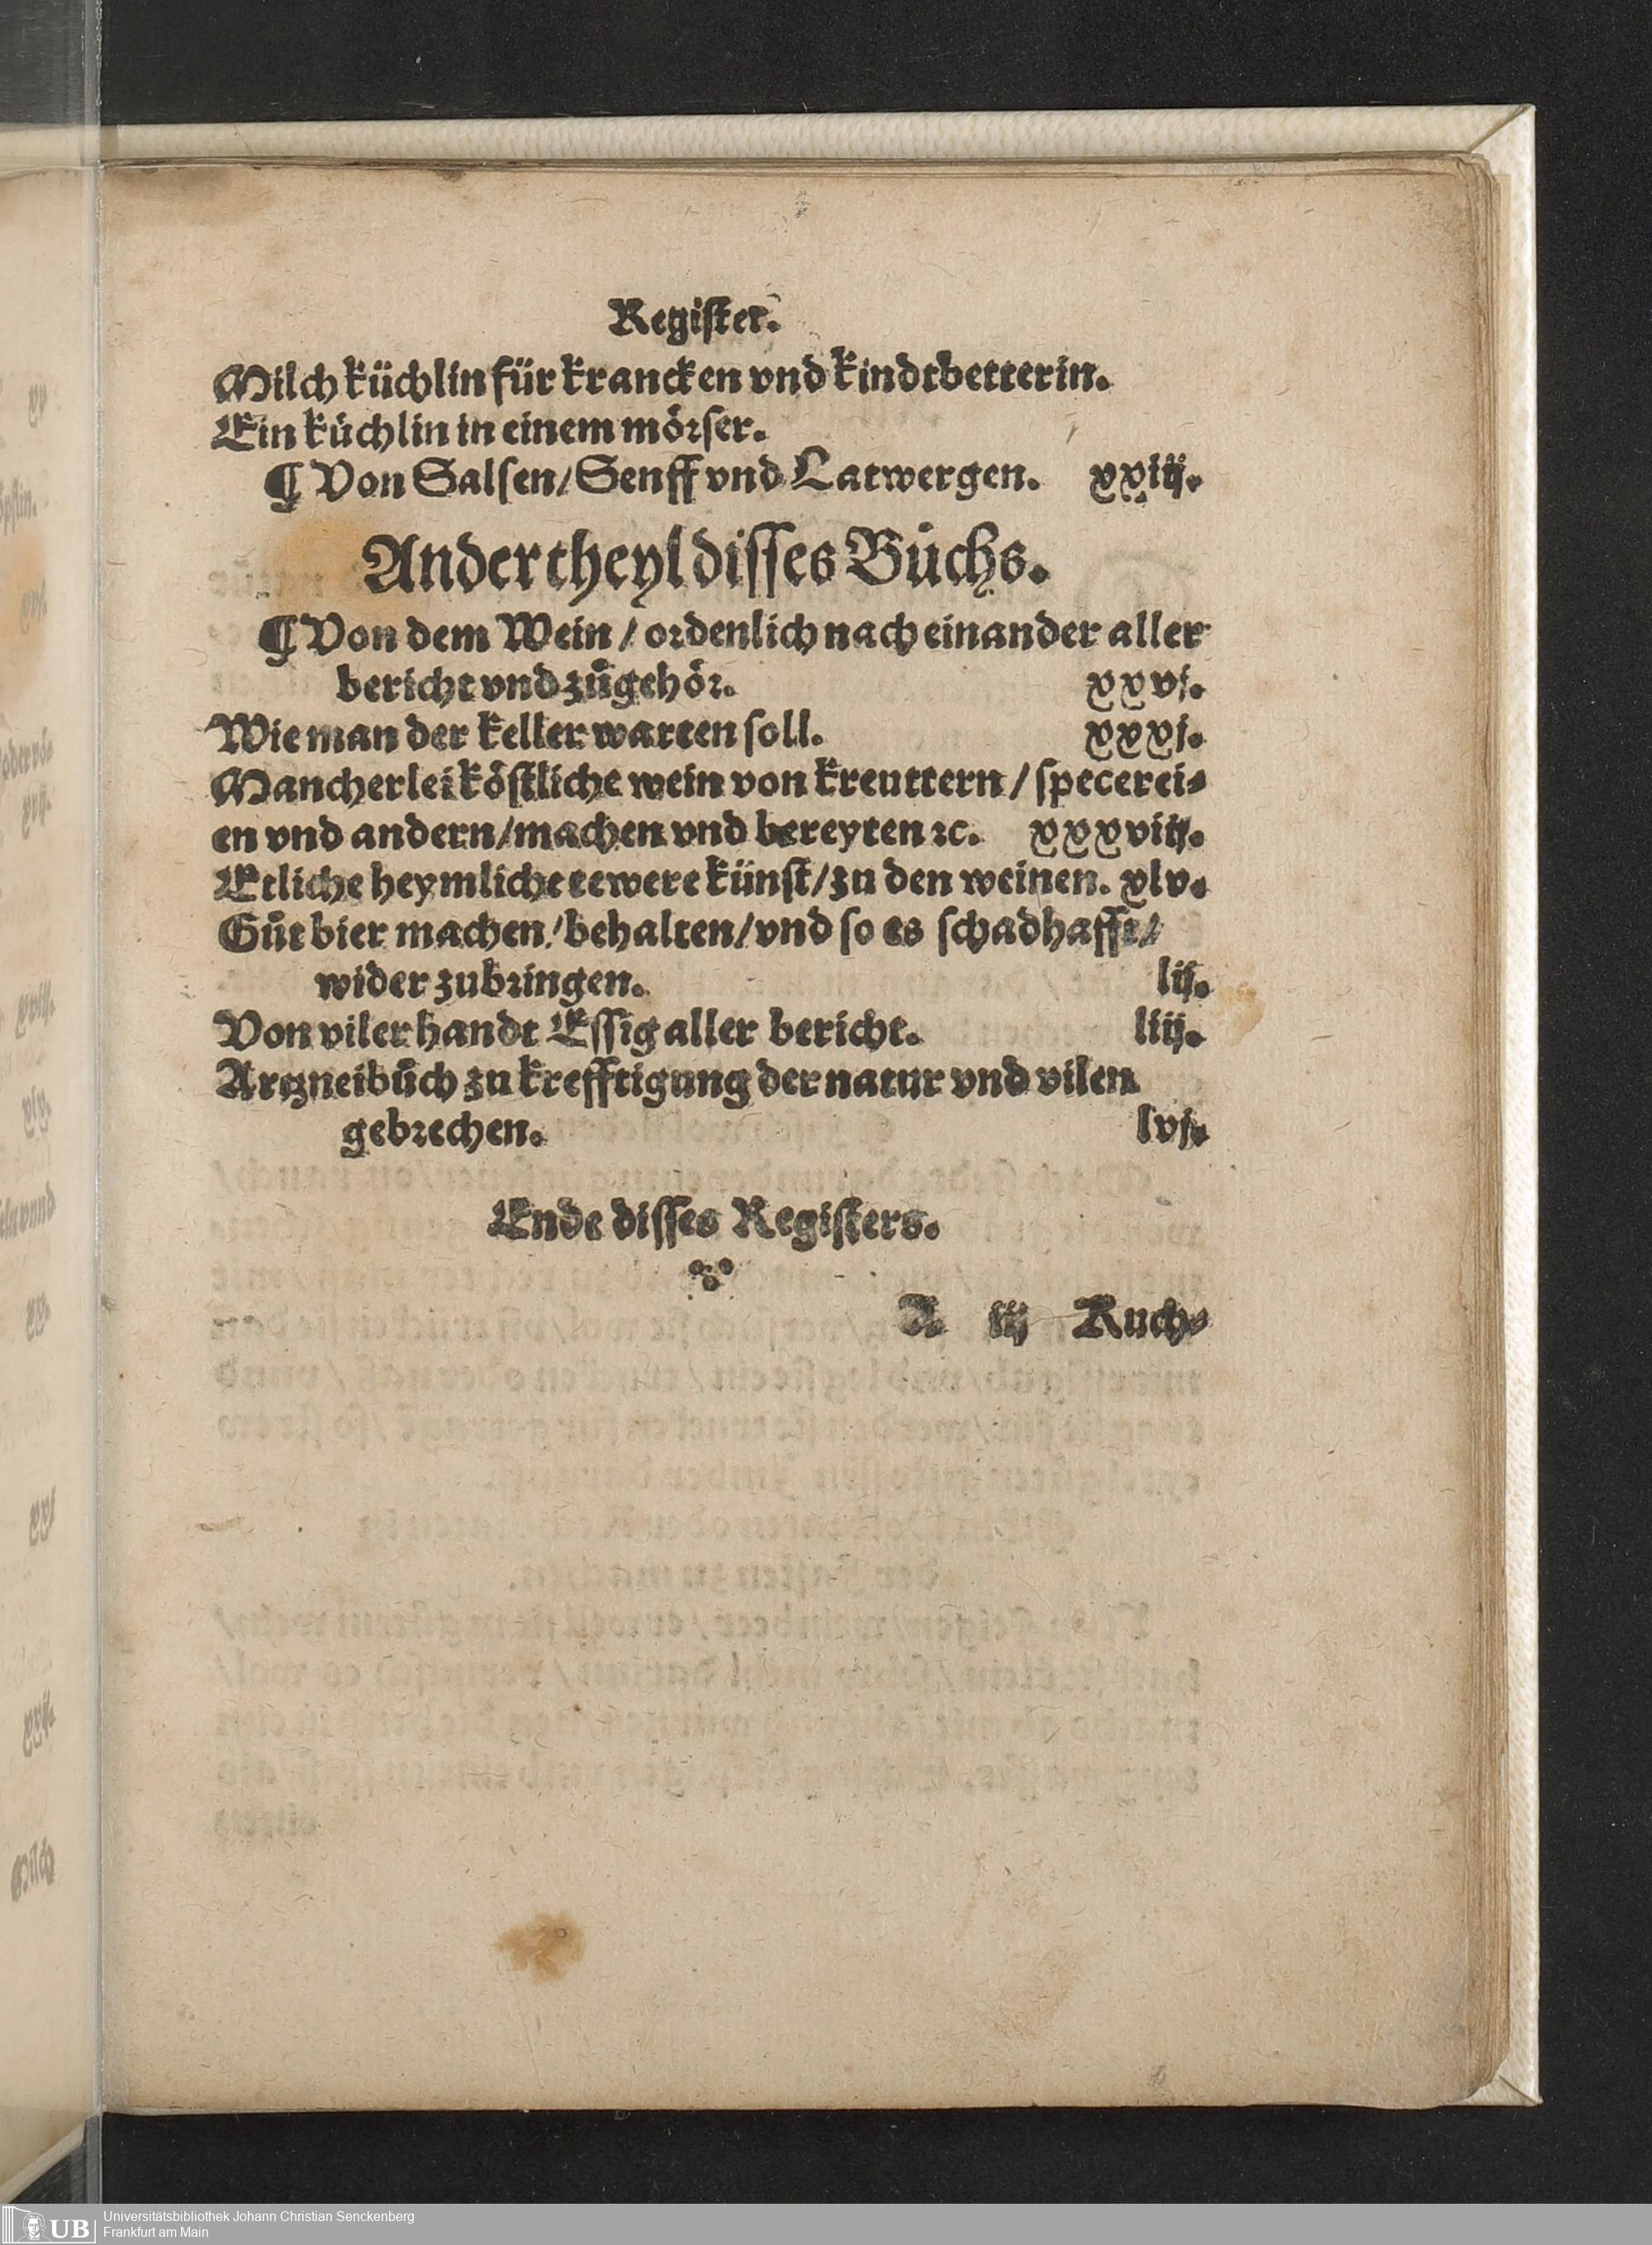 Register.
Milch küchlin für krancken vnd kindtbetterin.
Ein küchlin in einem mörser.
¶ Von Salsen/ Senff vnd Latwergen. xxiij.
Ander theyl disses Bůchs.
¶ Von dem Wein / ordenlich nach einander aller
bericht vnd zůgehör. xxvj.
Wie man der keller warten soll. xxxj.
Mancherlei köstliche wein von kreuttern / specerei⸗
en vnd andern/machen vnd bereyten ꝛc. xxxviij.
Etliche heymliche tewere künst/zu den weinen. xlv.
Gůt bier machen/behalten/vnd so es schadhafft/
wider zubringen. lij.
Von vilerhandt Essig aller bericht. liij.
Artzneibůch zu krefftigung der natur vnd vilen
gebrechen. lvj.
Ende disses Registers.
A iij Kuch⸗
UB
Universitätsbibliothek Johann Christian Senckenberg
Frankfurt am Main